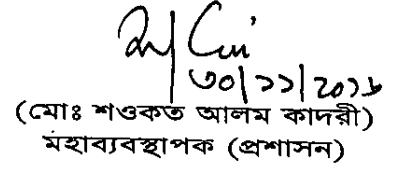 ৩০/১১/২০১৬
(মোঃ শওকত আলম কাদরী)
মহাব্যবস্থাপক (প্রশাসন)